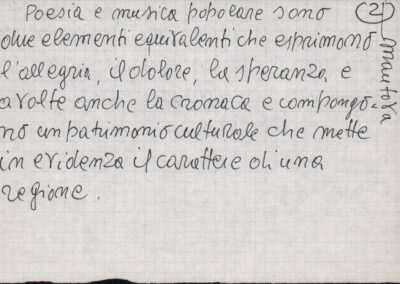 Poesia e musica popolare sono
due elementi equivalenti che esprimono
l'allegria, il dolore, la speranza e
a volte anche la cronaca e compongo-
no un patrimonio culturale che mette
in evidenza il carattere di una
regione.
2
mantova